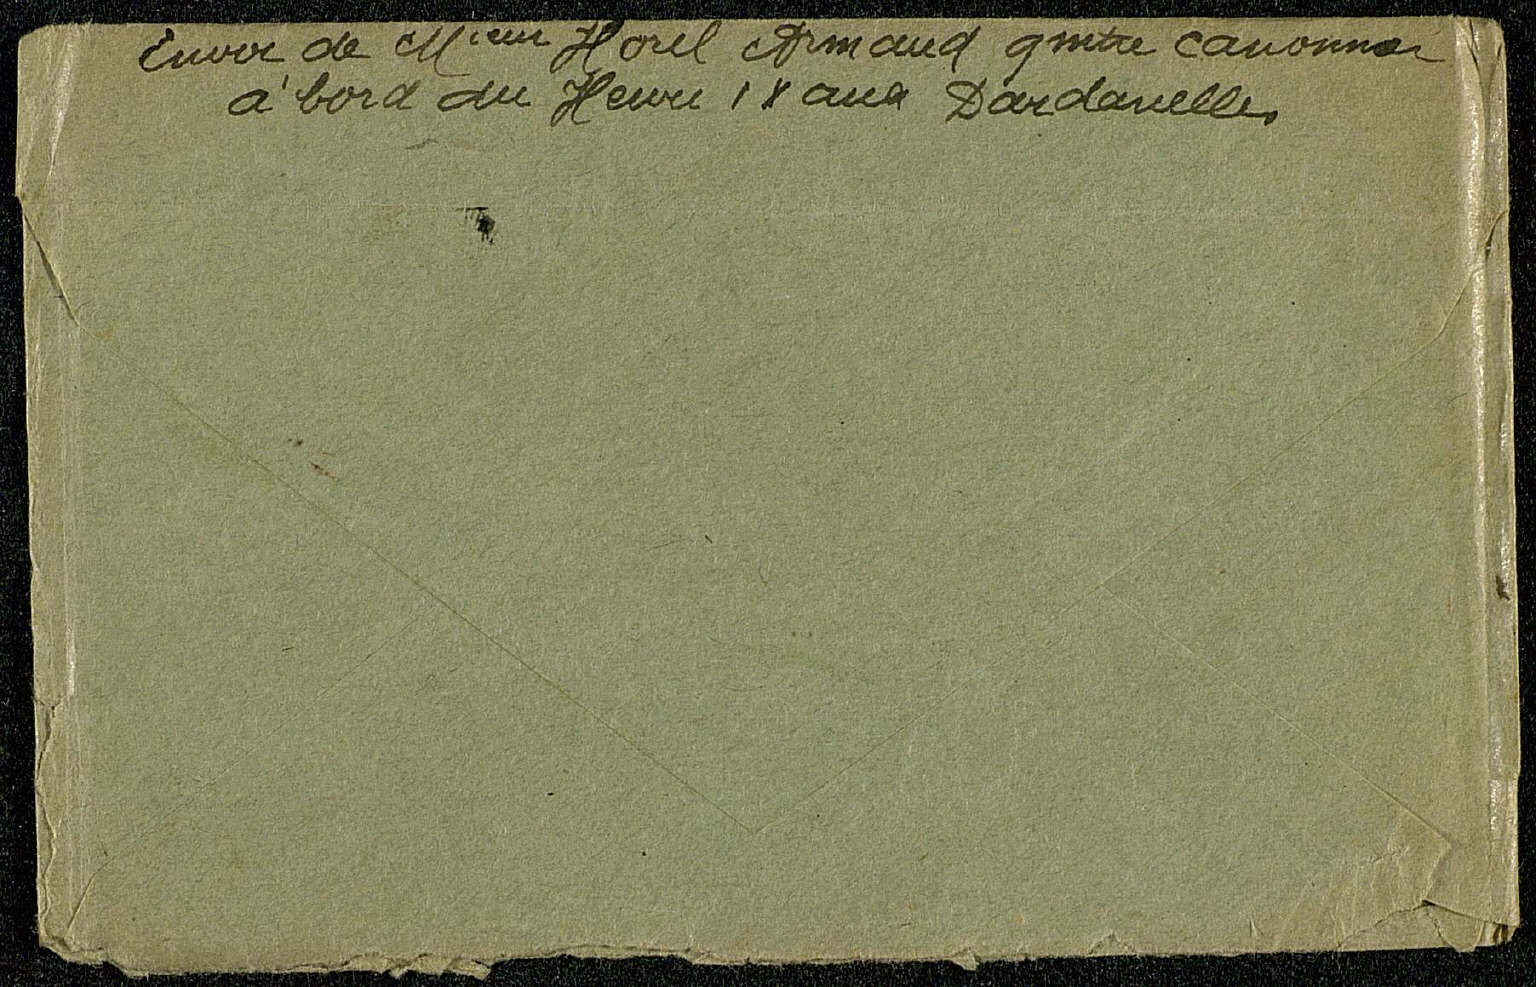 Envoi de Mieur Horel Armaud qmtre canonnier
à bord du Henri IV aux Dardanelles